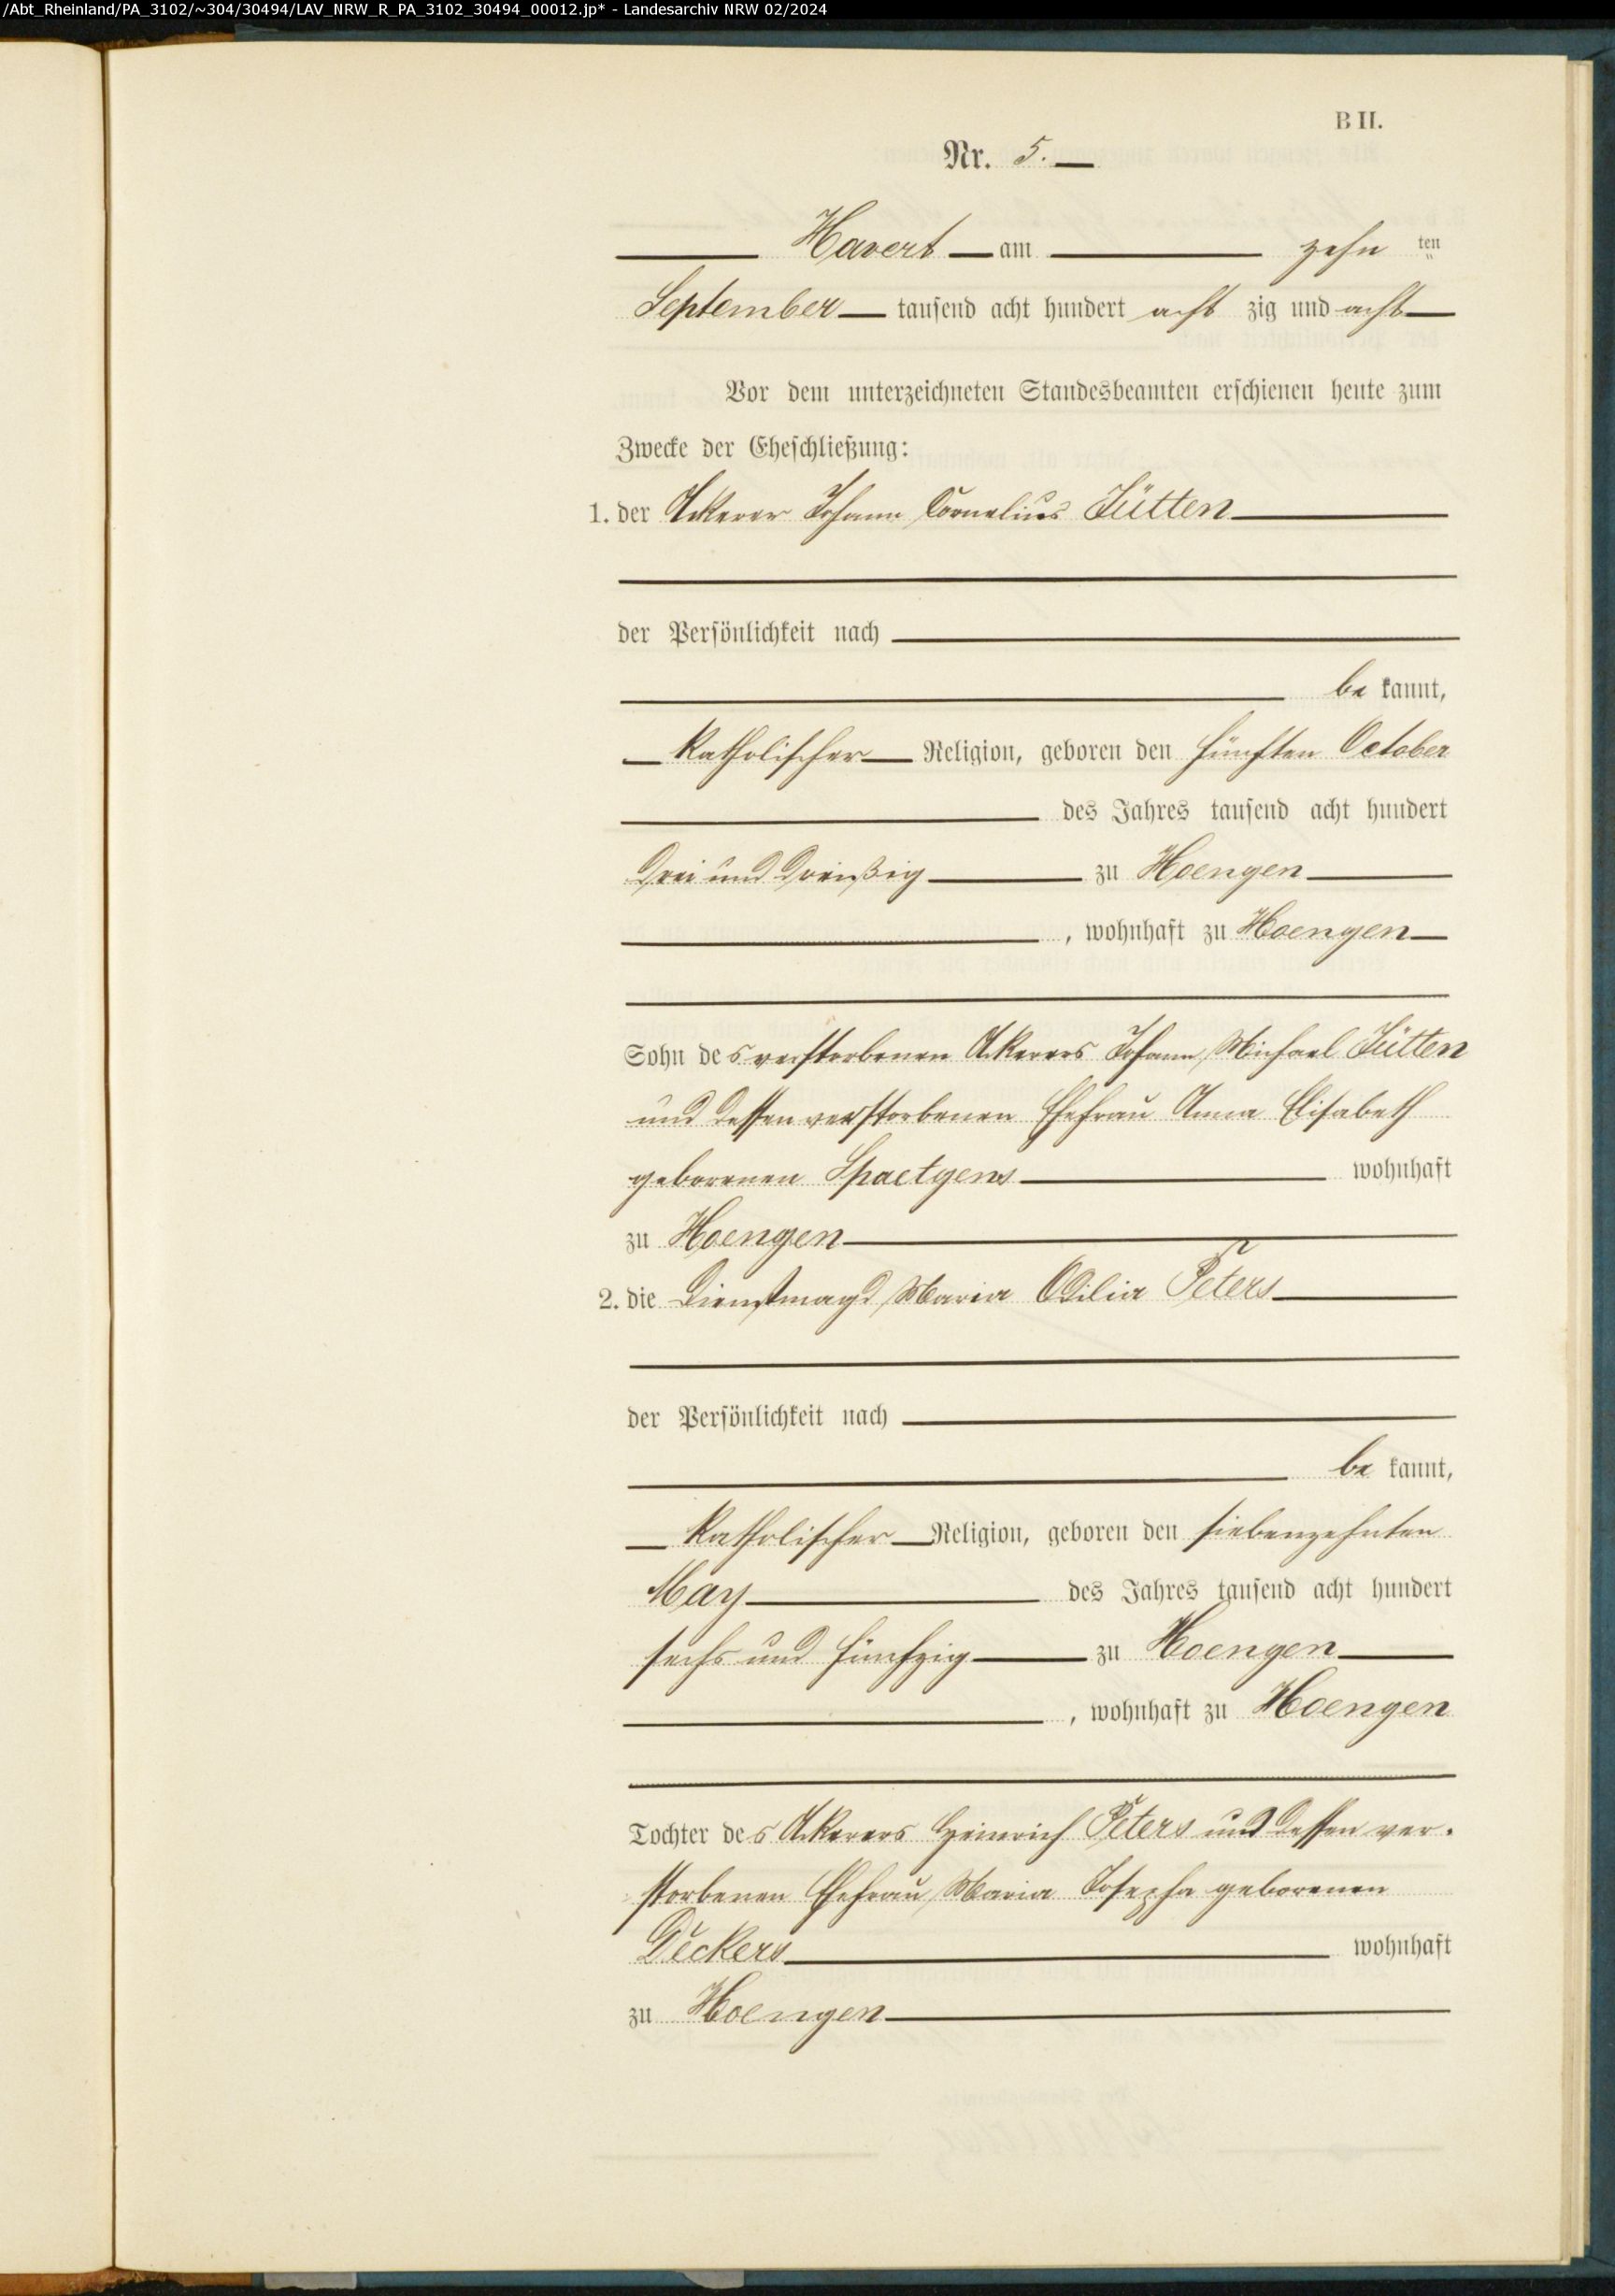 /Abt_Rheinland/PA_3102/~304/30494/LAV_NRW_R_PA_3102_30494_00012.jp* - Landesarchiv NRW 02/2024
B II.
Nr. 5.
Havert am zehn ten
September tausend acht hundert acht zig und acht
Vor dem unterzeichneten Standesbeamten erschienen heute zum
Zwecke der Eheschließung:
1. der Ackerer Johann Cornelius Jütten
der Persönlichkeit nach
be kannt,
katholischer Religion, geboren den fünften October
des Jahres tausend acht hundert
drei und dreißig zu Hoengen
, wohnhaft zu Hoengen
Sohn des verstorbenen Ackerers Johann Michael Jütten
und dessen verstorbenen Ehefrau Anna Elisabeth
geborenen Spaetgens wohnhaft
zu Hoengen
2. die Dienstmagd Maria Odilia Peters
der Persönlichkeit nach
be kannt,
katholischer Religion, geboren den siebenzehnten
May des Jahres tausend acht hundert
sechs und fünfzig zu Hoengen
, wohnhaft zu Hoengen
Tochter des Ackerers Heinrich Peters und dessen ver-
storbenen Ehefrau Maria Josepha geborenen
Deckers wohnhaft
zu Hoengen